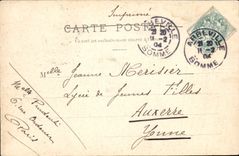 Imprimé
CARTE POSTALE
ABBEVILLE
21 20
11-2
04
SOMME
ABBEVILLE
21 20
11-2
04
SOMME
Mlle Jeanne Merisier
Lycée de Jeunes Filles
Auxerre
Yonne
Mlle
6 rue
Paris